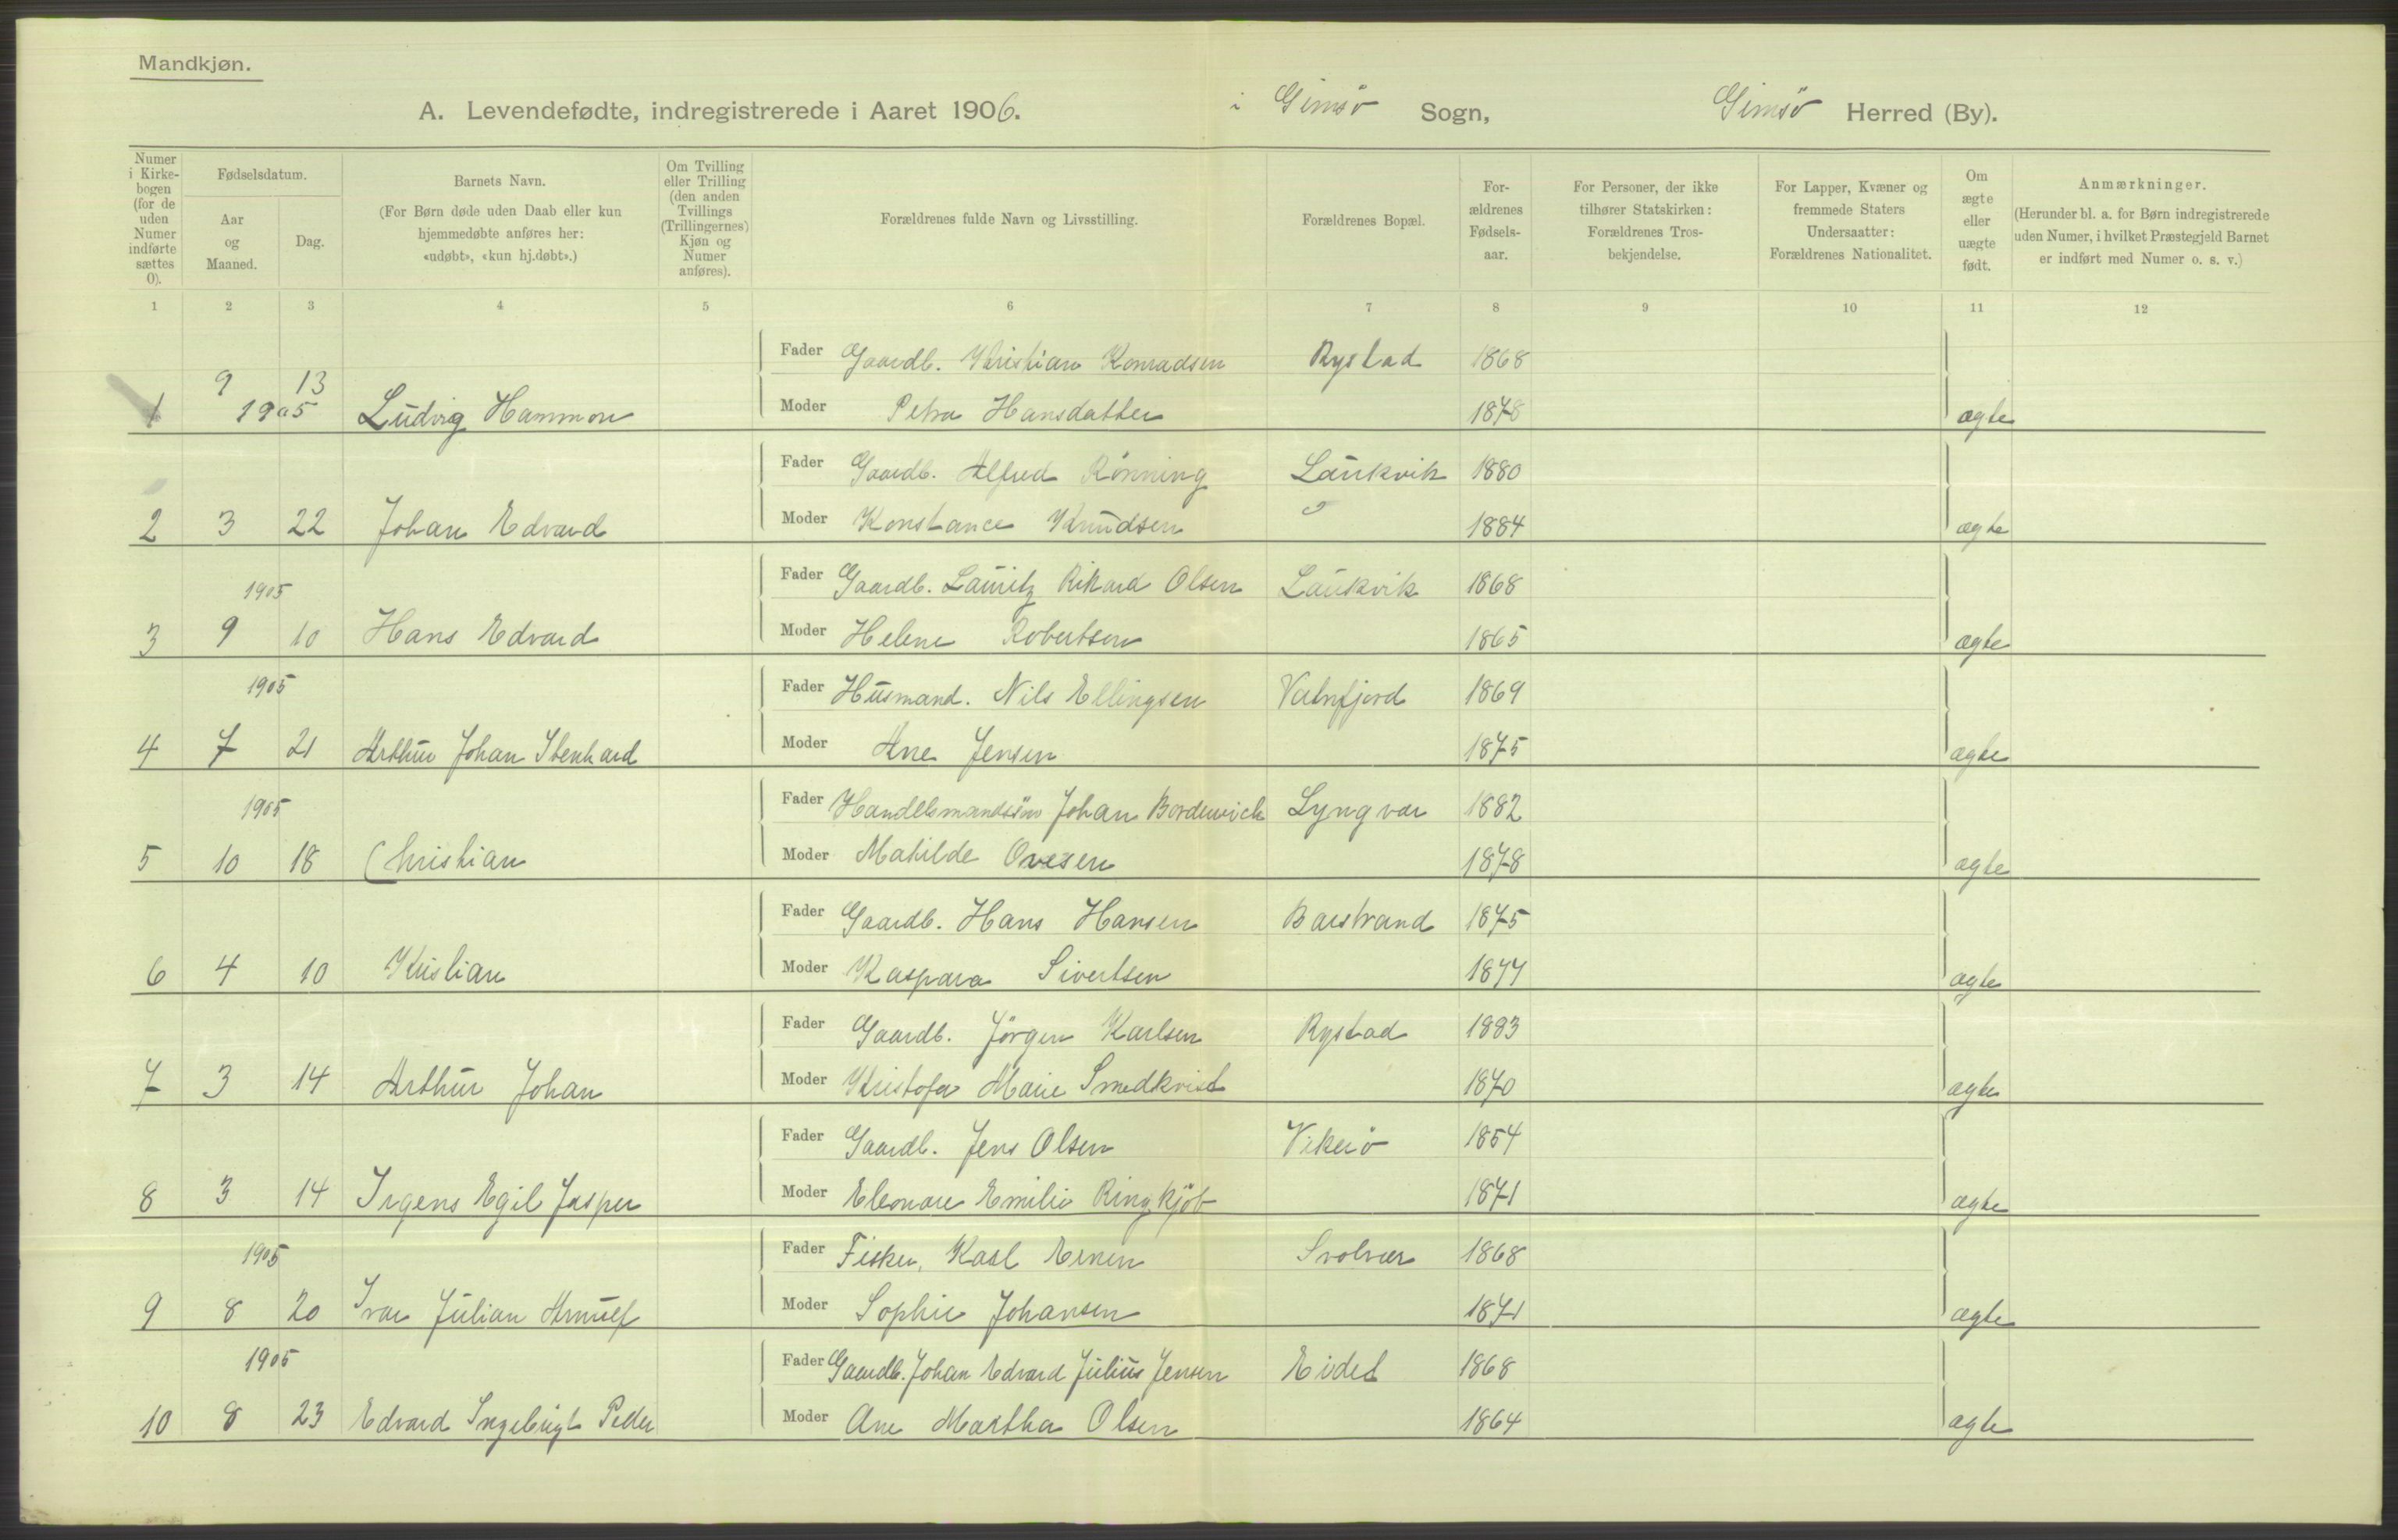 Mandkjøn.
A. Levendefødte, indregistrerede i Aaret 1906. i Gimsö Sogn, Gimsö Herred (By).
Numer i Kirkebogen (for de uden Numer indførte sættes 0).
Fødselsdatum.
Aar og Maaned.
Dag.
Barnets Navn.
(For Børn døde uden Daab eller kun hjemmedøbte anføres her: «udøbt», «kun hj.døbt».)
Om Tvilling eller Trilling (den anden Tvillings (Trillingernes) Kjøn og Numer anføres).
Forældrenes fulde Navn og Livsstilling.
Forældrenes Bopæl.
Forældrenes Fødselsaar.
For Personer, der ikke tilhører Statskirken: Forældrenes Trosbekjendelse.
For Lapper, Kvæner og fremmede Staters Undersaatter: Forældrenes Nationalitet.
Om ægte eller uægte født.
Anmærkninger.
(Herunder bl. a. for Børn indregistrerede uden Numer, i hvilket Præstegjeld Barnet er indført med Numer o. s. v.)
1 2 3 4 5 6 7 8 9 10 11 12
Fader Gaardb. Kristian Konradsen Rystad 1868
1 9 13 1905 Ludvig Hammon Moder Petra Hansdatter 1878 ægte
Fader Gaardb. Alfred Rönning Laukvik 1880
2 3 22 Johan Edvard Moder Konstance Knudsen " 1884 ægte
1905 Fader Gaardb. Lauritz Rikard Olsen Laukvik 1868
3 9 10 Hans Edvard Moder Helene Robertsen 1865 ægte
1905 Fader Husmand. Nils Ellingsen Vatnfjord 1869
4 7 21 Arthur Johan Stenhard Moder Ane Jensen 1875 ægte
1905 Fader Handelsmandssön Johan Bordewich Lyngvær 1882
5 10 18 Christian Moder Mathilde Ovesen 1878 ægte
Fader Gaardb. Hans Hansen Barstrand 1875
6 4 10 Kristian Moder Kaspara Sivertsen 1877 ægte
Fader Gaardb. Jörgen Karlsen Rystad 1883
7 3 14 Arthur Johan Moder Kristofa Marie Smedkvist 1870 ægte
Fader Gaardb. Jens Olsen 1854
8 3 14 Irgens Egil Jasper Moder Eleonore Emilie Ringkjöb 1871 ægte
1905 Fader Fisker, Karl Svolvær 1868
9 8 20 Ivar Julian Arnulf Moder Sophie Johansen 1871 ægte
1905 Fader Gaardb. Johan Edvard Julius Jensen Eidet 1868
10 8 23 Edvard Ingebrigt Peder Moder Ane Martha Olsen 1864 ægte